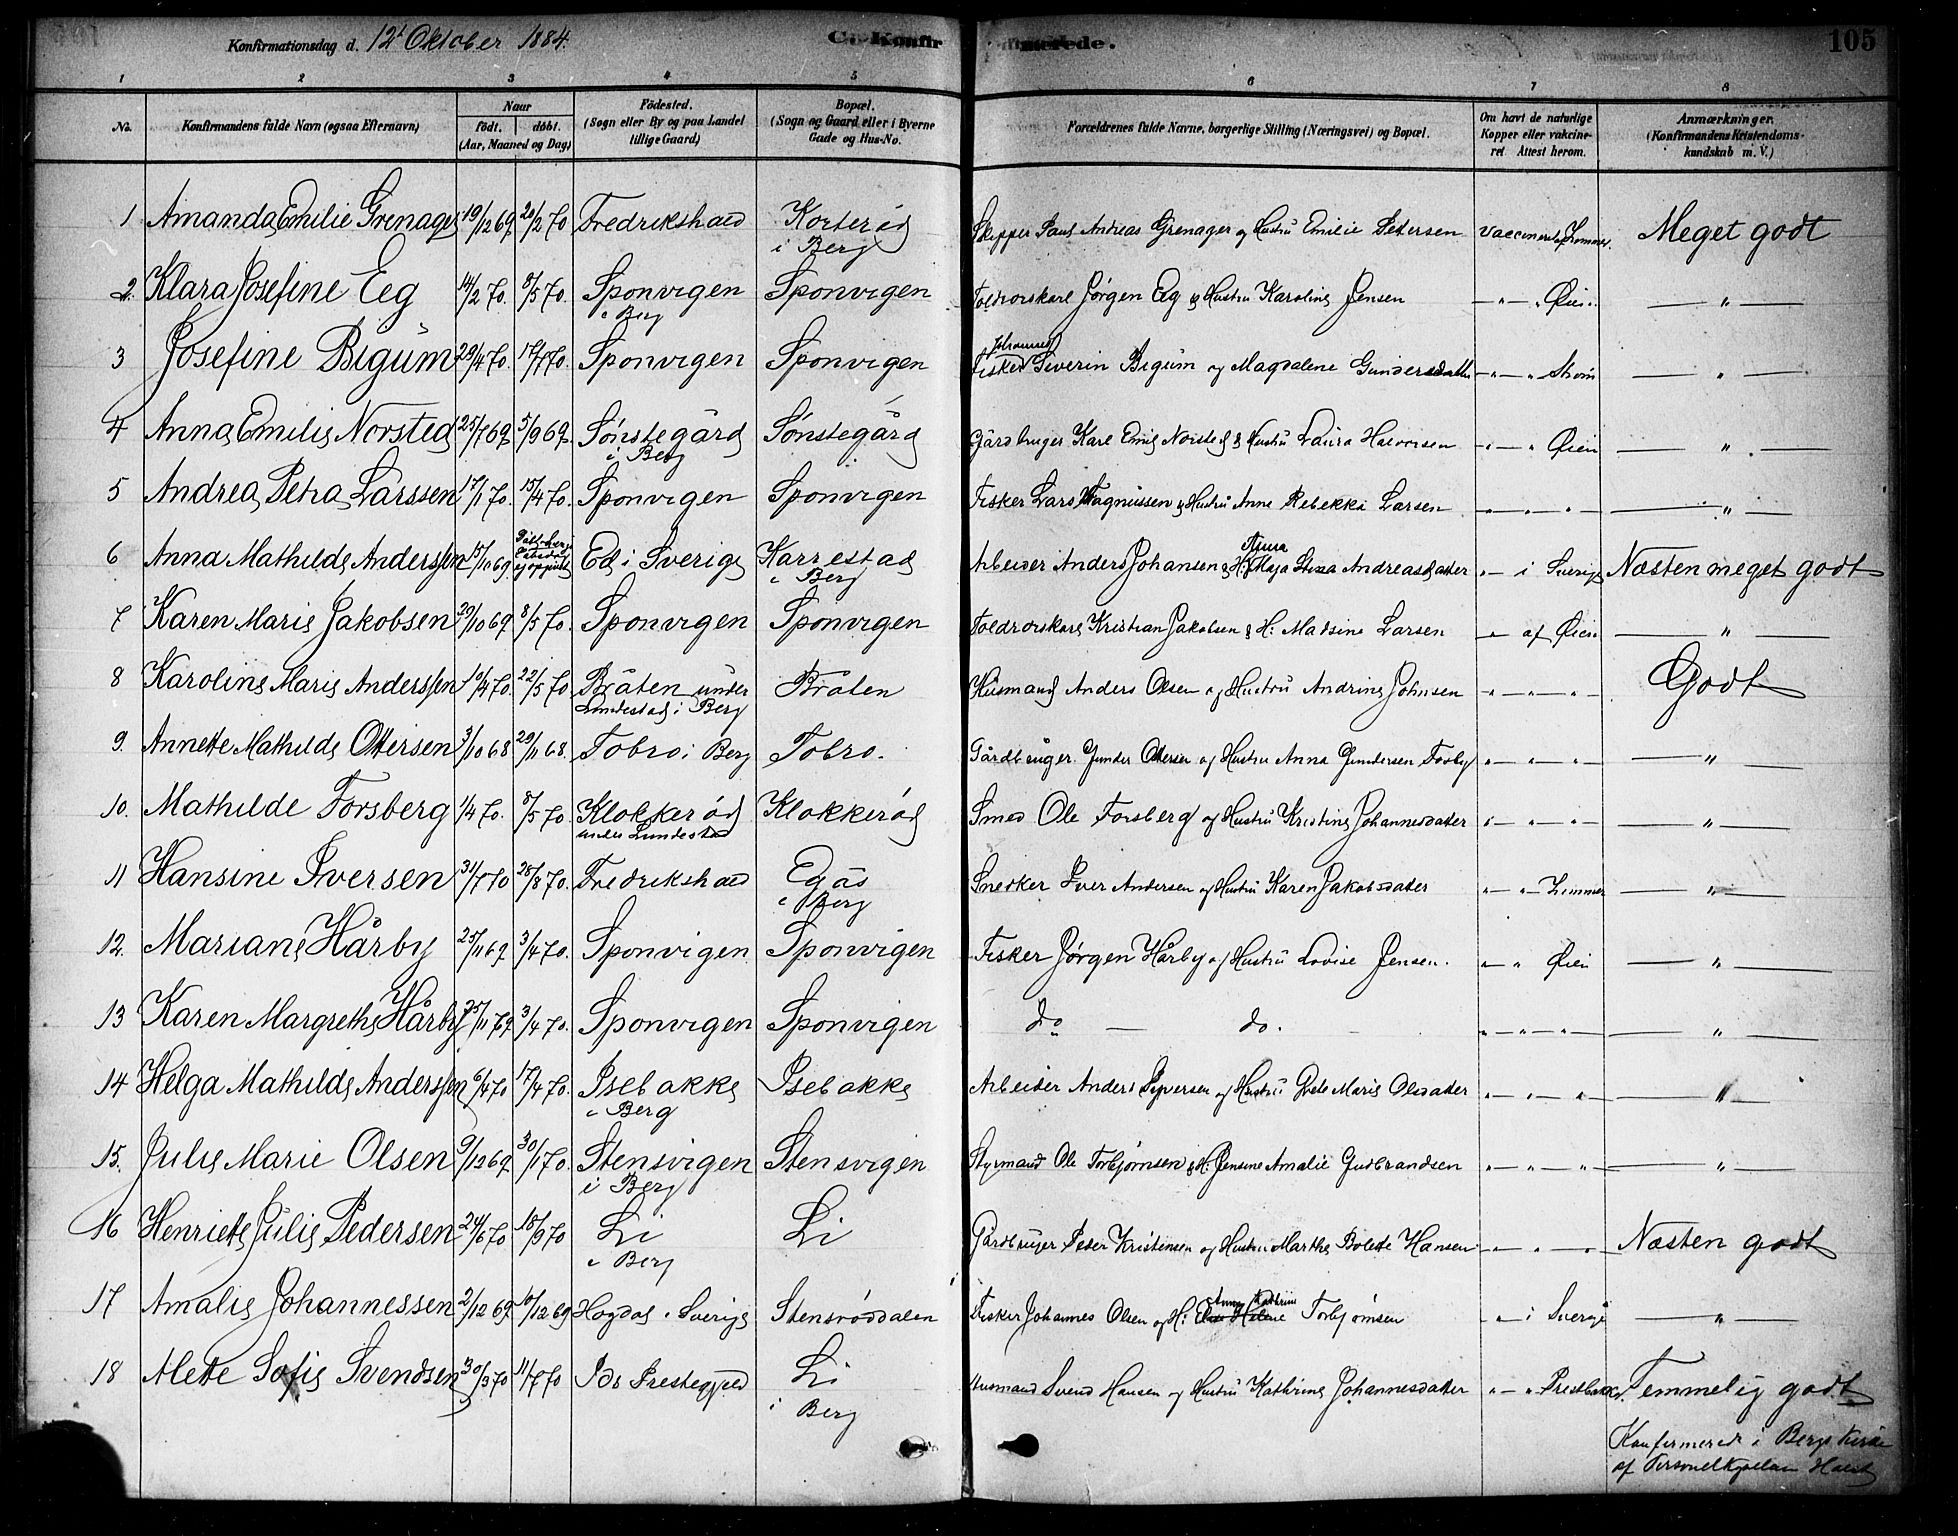 Konfirmationsdag d. 12t Oktober 1884.
Konfirmerede.
105
1 2 3 4 5 6 7 8
No.
Konfirmandens fulde Navn (ogsaa Efternavn)
Naar
födt. döbt.
(Aar, Maaned og Dag)
Födested.
(Sogn eller By og paa Landet
tillige Gaard)
Bopæl.
(Sogn og Gaard eller i Byerne
Gade og Hus-No.
Forældrenes fulde Navne, borgerlige Stilling (Næringsvei) og Bopæl.
Om havt de naturlige
Kopper eller vakcine-
ret. Attest herom.
Anmærkninger.
(Konfirmandens Kristendoms-
kundskab m. V.)
1 Amanda Emilie Grenager 19/12 69 20/2 70 Fredrikshald Korterød i Berg Skipper Paul Andreas Grenager og Hustru Emilie Petersen Vaccineret Meget godt
2. Klara Josefine Eeg 14/2 70. 8/5 70. Sponvigen i Berg Sponvigen Jørgen Eeg og Hustru Karoline Jensen " — " Øien — " —
3 Josefine Bigum 29/4 70. 17/7 70. Sponvigen Sponvigen Fisker Johannes Siverin Bigum og Magdalene Gundersdatter " — " Strøm — " —
4 Anna Emilie Norsted 25/7 69 5/9 69. Sønstegård i Berg Sønstegård Gårdbruger Karl Emil Norsted & Hustru Laura Halvorsen " — " Øien — " —
5 Andrea Petra Larssen 17/1 70. 15/4 70. Sponvigen Sponvigen Fisker Lars Magnussen & Hustru Anne Rebekka Larsen " — " — " — " —
6 Anna Mathilde Anderssen 15/10 69 Ed i Sverige Karrestad i Berg Arbeider Anders Johansen & H. Anna Maja Stina Andreasdatter " — i Sverige Næsten meget godt
7 Karen Marie Jakobsen 29/10 69 8/5 70. Sponvigen Sponvigen Kristian Jakobsen & H: Madsine Larsen " — af Øien — " —
8 Karoline Marie Anderssen 10/4 70. 22/5 70 Bråten under Lundestad i Berg Bråten Husmand Anders Olsen og Hustru Andrine Johnsen " — " — " Godt
9. Annette Mathilde Ottersen 3/10 68 29/11 68. Tobro i Berg Tobro. Gårdbruger Gunder Ottersen og Hustru Anna Gundersen Torby " — " — " — " —
10. Mathilde Forsberg 1/4 70. 8/5 70 Klokkerød under Lundestad Klokkerød Smed Ole Forsberg og Hustru Kristine Johannesdatter " — " — " — " —
11 Hansine Iversen 31/7 70 28/8 70. Fredrikshald Egås i Berg Snedker Iver Andersen og Hustru Karen Jakobsdatter " — " — Lammer — " —
12. Mariane Hårby 25/11 69 3/4 70. Sponvigen Sponvigen Fisker Jørgen Hårby og Hustru Lovise Jensen. " — " Øien — " —
13 Karen Margrethe Hårby 25/11 69. 3/4 70. Sponvigen Sponvigen do — do. " — " — " — " —
14 Helga Mathilde Anderssen 6/4 70 17/4 70. Isebakke i Berg Isebakke Arbeider Anders Syversen og Hustru Grete Marie Olsdatter " — " — " — " —
15. Julie Marie Olsen 9/12 69 30/1 70. Stensvigen i Berg Stensvigen Styrmand Ole Torbjørnsen & H: Jensine Amalie Gudbrandsen " — " — " — " —
16 Henriette Julie Pedersen 24/6 70 18/9 70 Li i Berg Li Gårdbruger Peder Kristensen og Hustru Marthe Bolette Hansen " — " — " Næsten godt
17 Amalie Johannessen 2/12 69 10/12 69 Hogdal i Sverige Stensrøddalen Fisker Johannes Olsen og H: Anne Kathrine Torbjørnsen " — i Sverige — " —
18 Alette Sofie Svendsen 30/3 70 11/7 70 Ids Prestegjeld Li i Berg Husmand Svend Hansen og Hustru Kathrine Johannesdatter " — " Prestbakke. Temmelig godt
Konfirmerede i Bergs Kirke
af Personelkapellan Holst